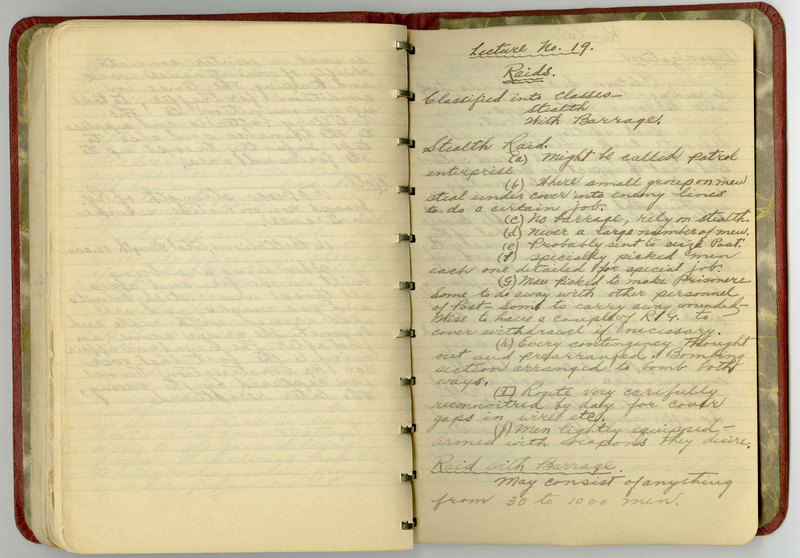 Lecture No. 19.
Raids.
Classified into classes—
Stealth
With Barrage.
Stealth Raid.
(a) Might be called patrol
enterprise
(b) Where small group on men
steal under cover into enemy lines
to do a certain job.
(c) No barrage, rely on stealth.
(d) Never a large number of men.
(e) Probably sent to seize Post.
(f) specially picked men
each one detailed for special job.
(g) Men picked to make Prisoners
Some to do away with other personnel
of Post— Some to carry away wounded—
Wise to have a couple of R/G. to
cover withdrawel if necessary.
(h) Every contingency thought
out and prearranged. Bombing
section arranged to bomb both
ways.
(I) Route very carefully
reconnoitred by day for cover
gaps in wire etc.
(j) Men lightly equipped—
armed with weapons they desire.
Raid with Barrage.
May consist of anything
from 30 to 1000 men.